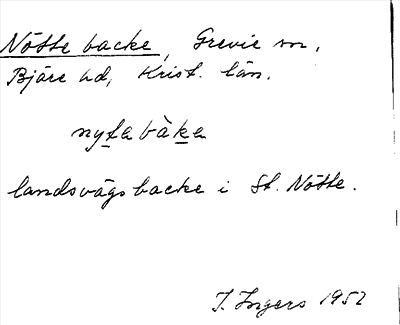 Nötte backe, Grevie sn,
Bjäre hd, Krist. län.
nytebàka
landsvägsbacke i St. Nötte.
I. Ingers 1952